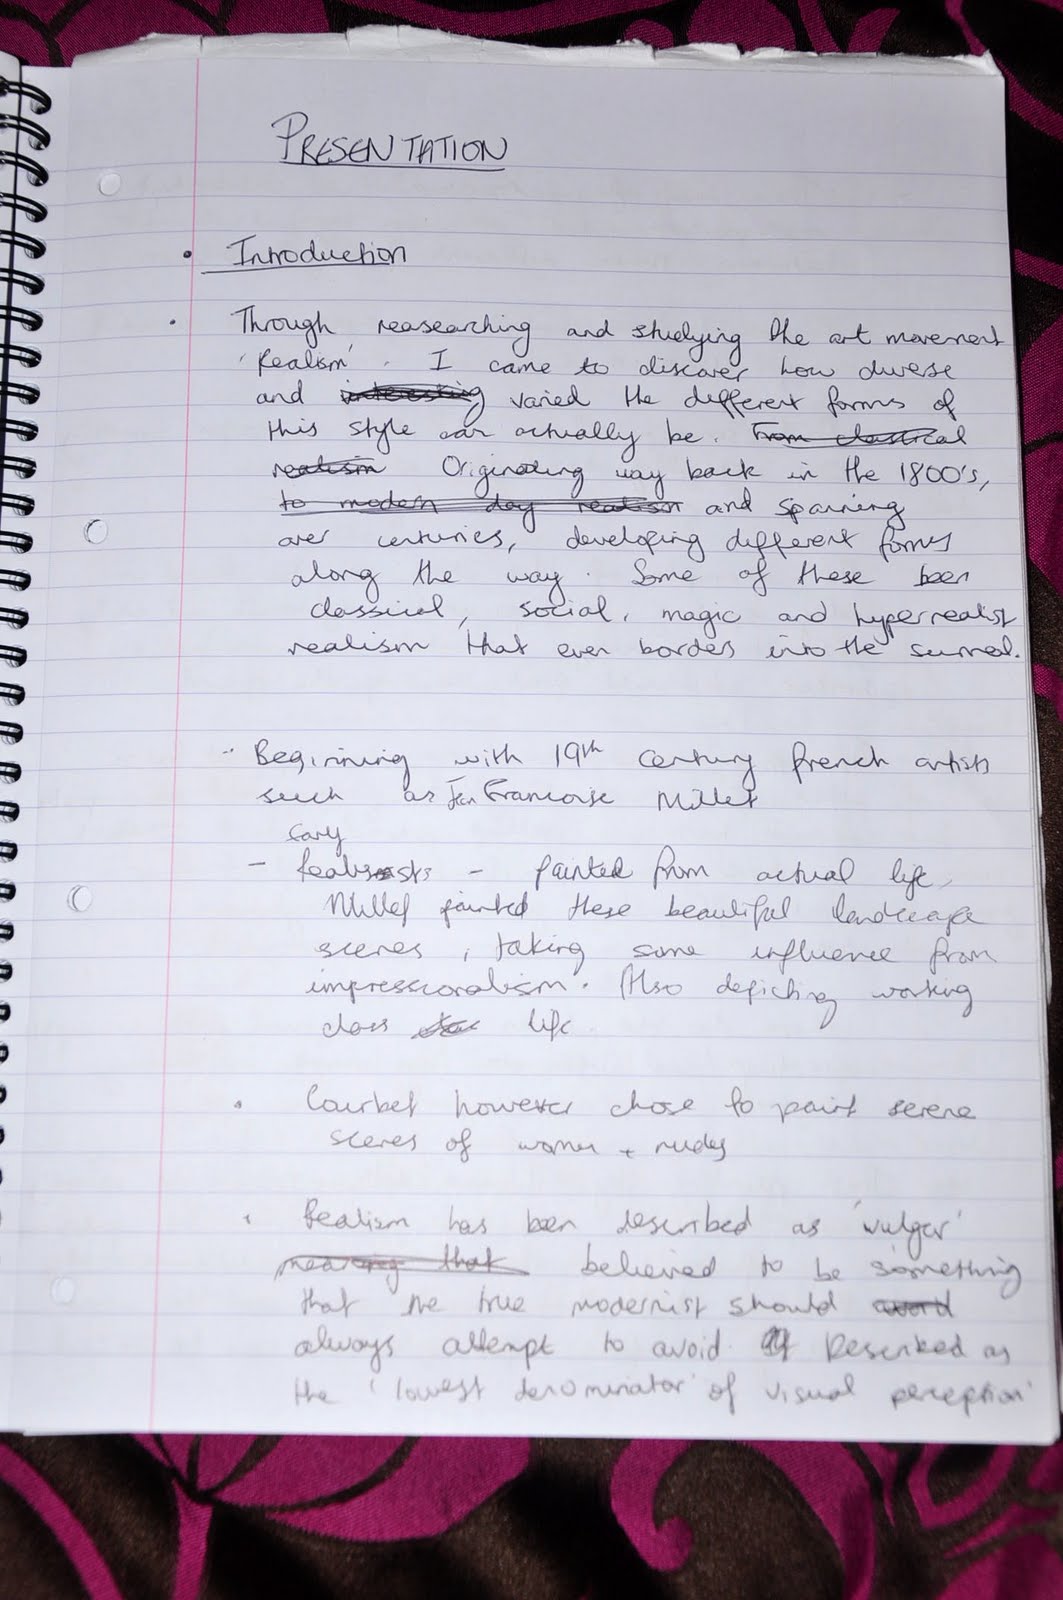 PRESENTATION
• Introduction
• Through reasearching and studying the art movement
'Realism'. I came to discover how diverse
and interesting varied the different forms of
this style can actually be. From classical
realism Originating way back in the 1800's,
to modern day realism and spanning
over centuries, developing different forms
along the way. Some of these been
classical, social, magic and hyperrealist
realism that even borders into the surreal.
- Beginning with 19th century french artists
such as Jean Francoise Millet
early
- Realists - painted from actual life,
Millet painted these beautiful landscape
scenes, taking some influence from
impressionalism. Also depicting working
class life
• Courbet however chose to paint serene
scenes of women + nudes
• Realism has been described as 'vulgar'
meaning that believed to be something
that the true modernist should avoid
always attempt to avoid. Described as
the 'lowest denominator' of visual perception'